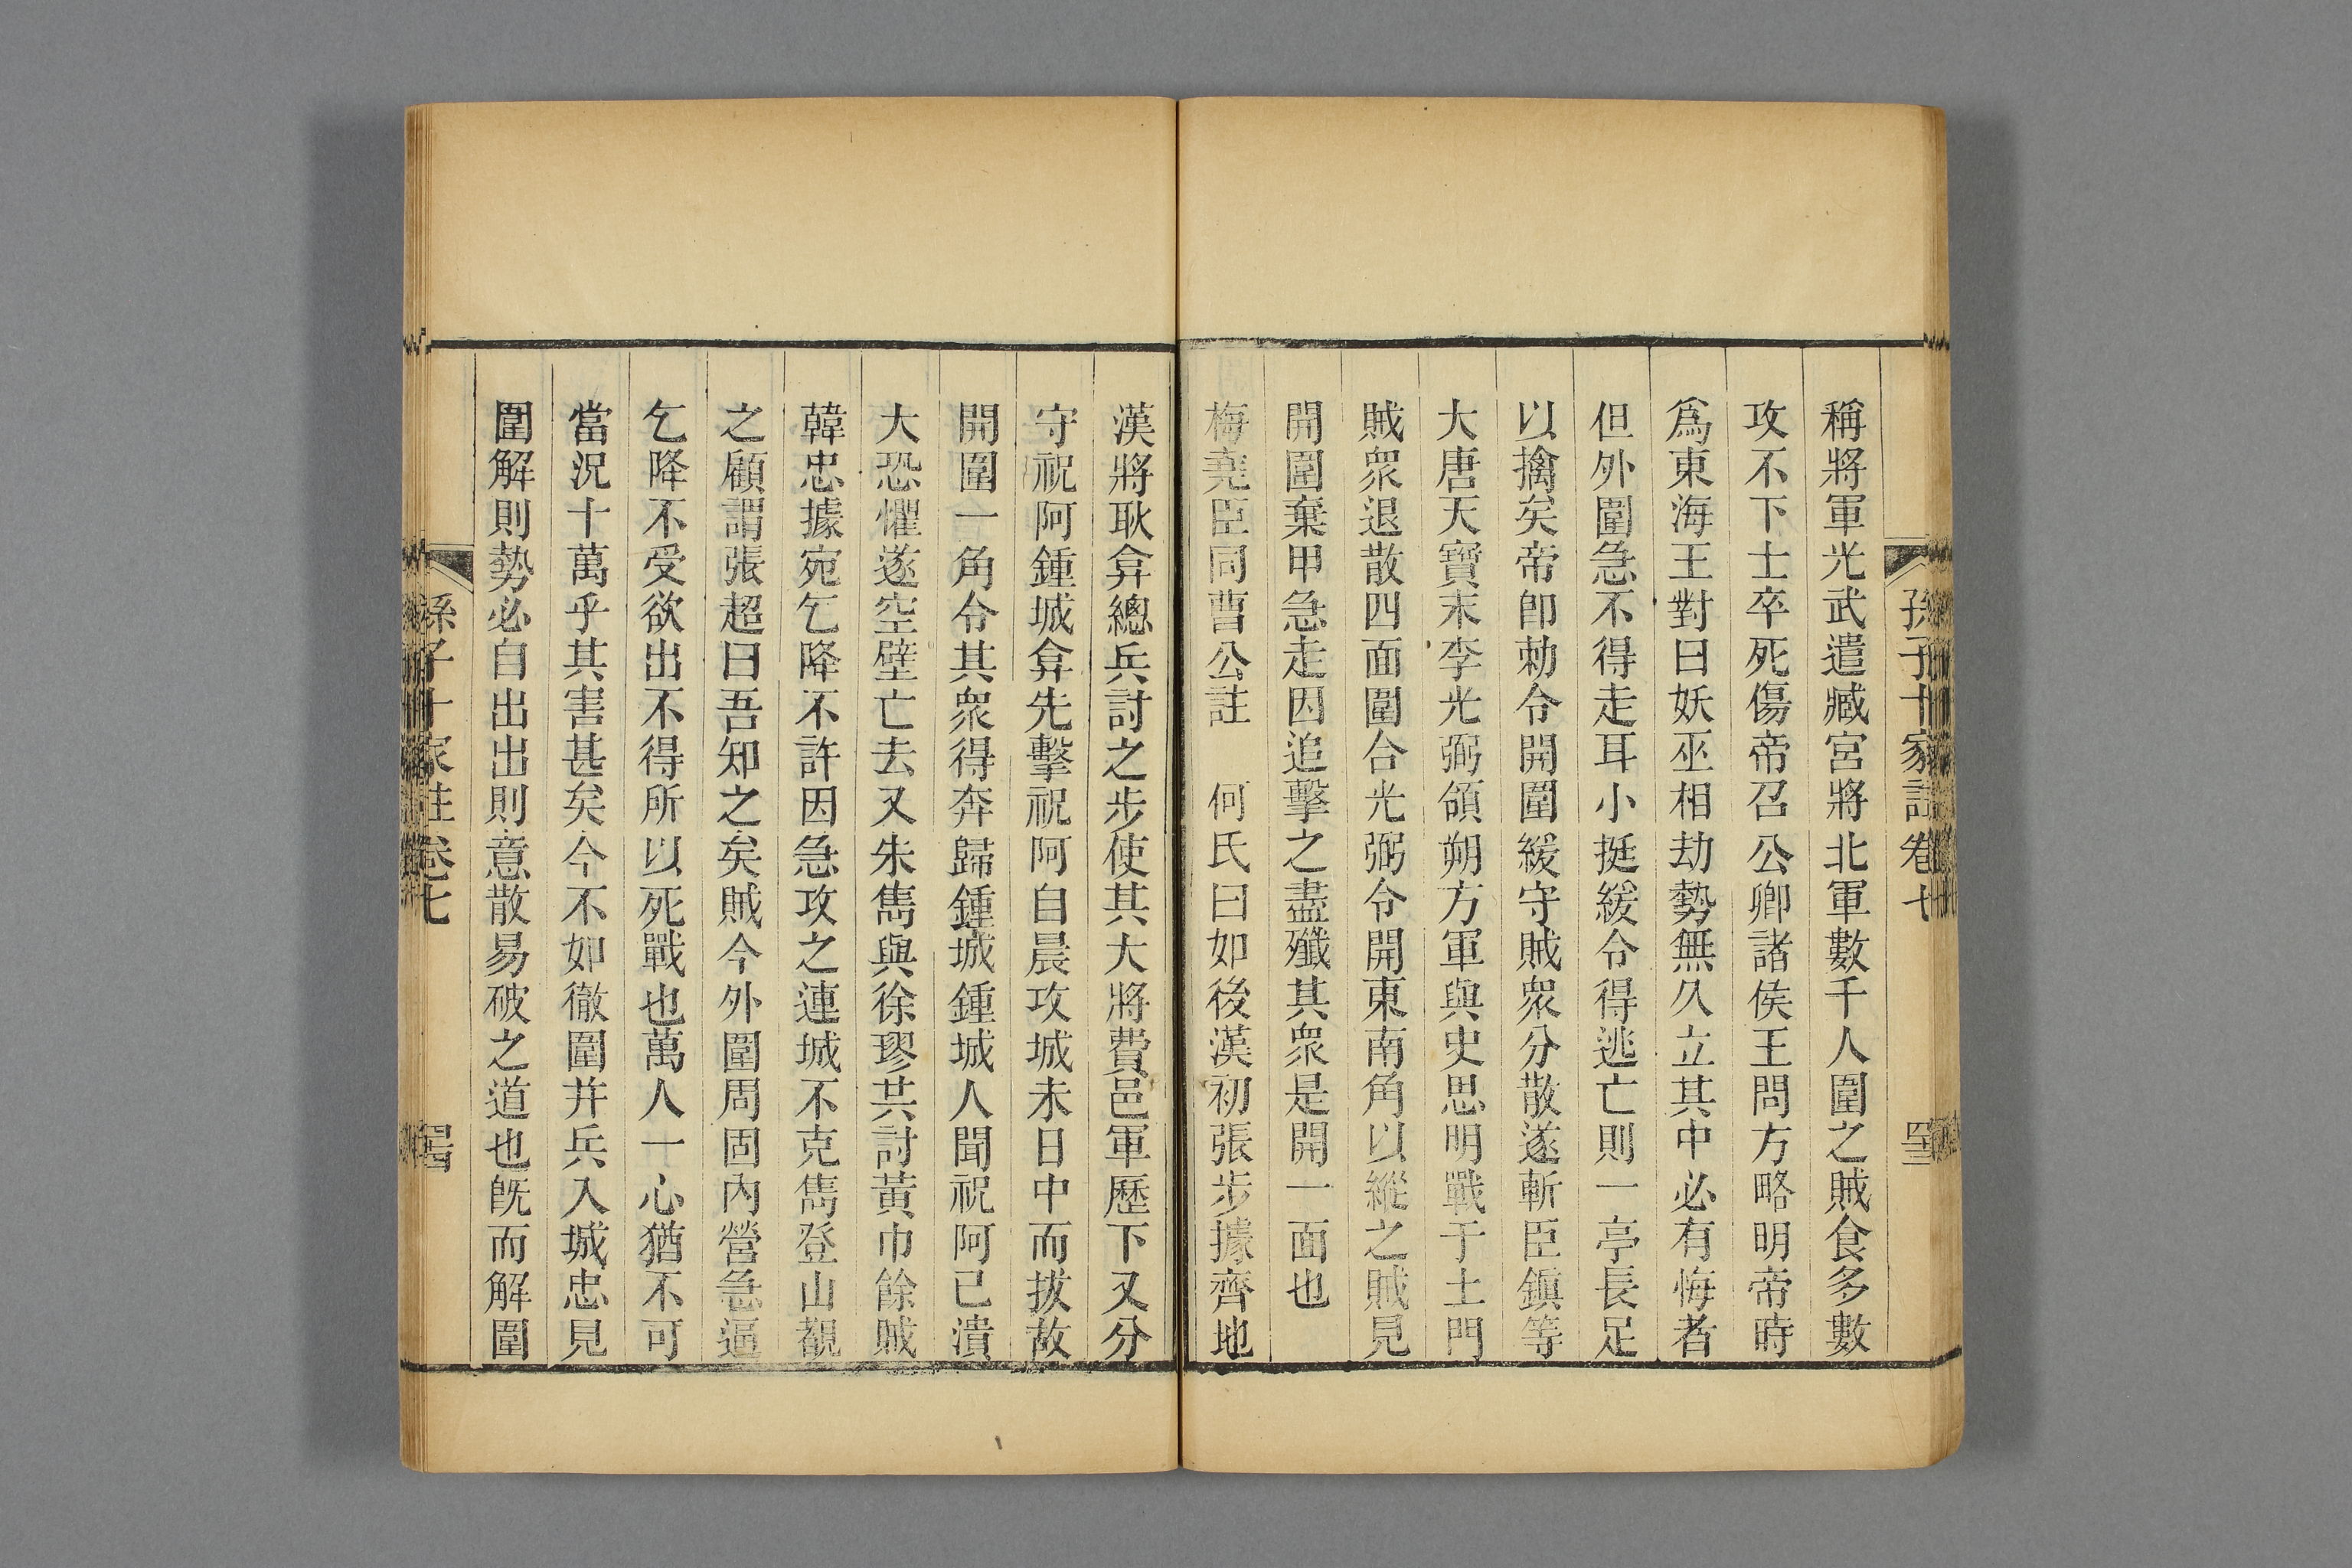 孫子十家註卷七
稱將軍光武遣臧宮將北軍數千人圍之賊食多數
攻不下士卒死傷帝召公卿諸侯王問方略明帝時
爲東海王對曰妖巫相劫勢無久立其中必有悔者
但外圍急不得走耳小挺緩令得逃亡則一亭長足
以擒矣帝卽勑令開圍緩守賊衆分散遂斬臣鎭等
大唐天寶末李光弼領朔方軍與史思明戰于土門
賊衆退散四面圍合光弼令開東南角以縱之賊見
開圍棄甲急走因追擊之盡殲其衆是開一面也
梅堯臣同曹公註 何氏曰如後漢初張步據齊地
漢將耿弇總兵討之步使其大將費邑軍歷下又分
守祝阿鍾城弇先擊祝阿自晨攻城未日中而拔故
開圍一角令其衆得奔歸鍾城鍾城人聞祝阿已潰
大恐懼遂空壁亡去又朱雋與徐璆共討黃巾餘賊
韓忠據宛乞降不許因急攻之連城不克雋登山觀
之顧謂張超曰吾知之矣賊今外圍周固內營急逼
乞降不受欲出不得所以死戰也萬人一心猶不可
當況十萬乎其害甚矣今不如徹圍幷兵入城忠見
圍解則勢必自出出則意散易破之道也旣而解圍
孫子十家註卷七